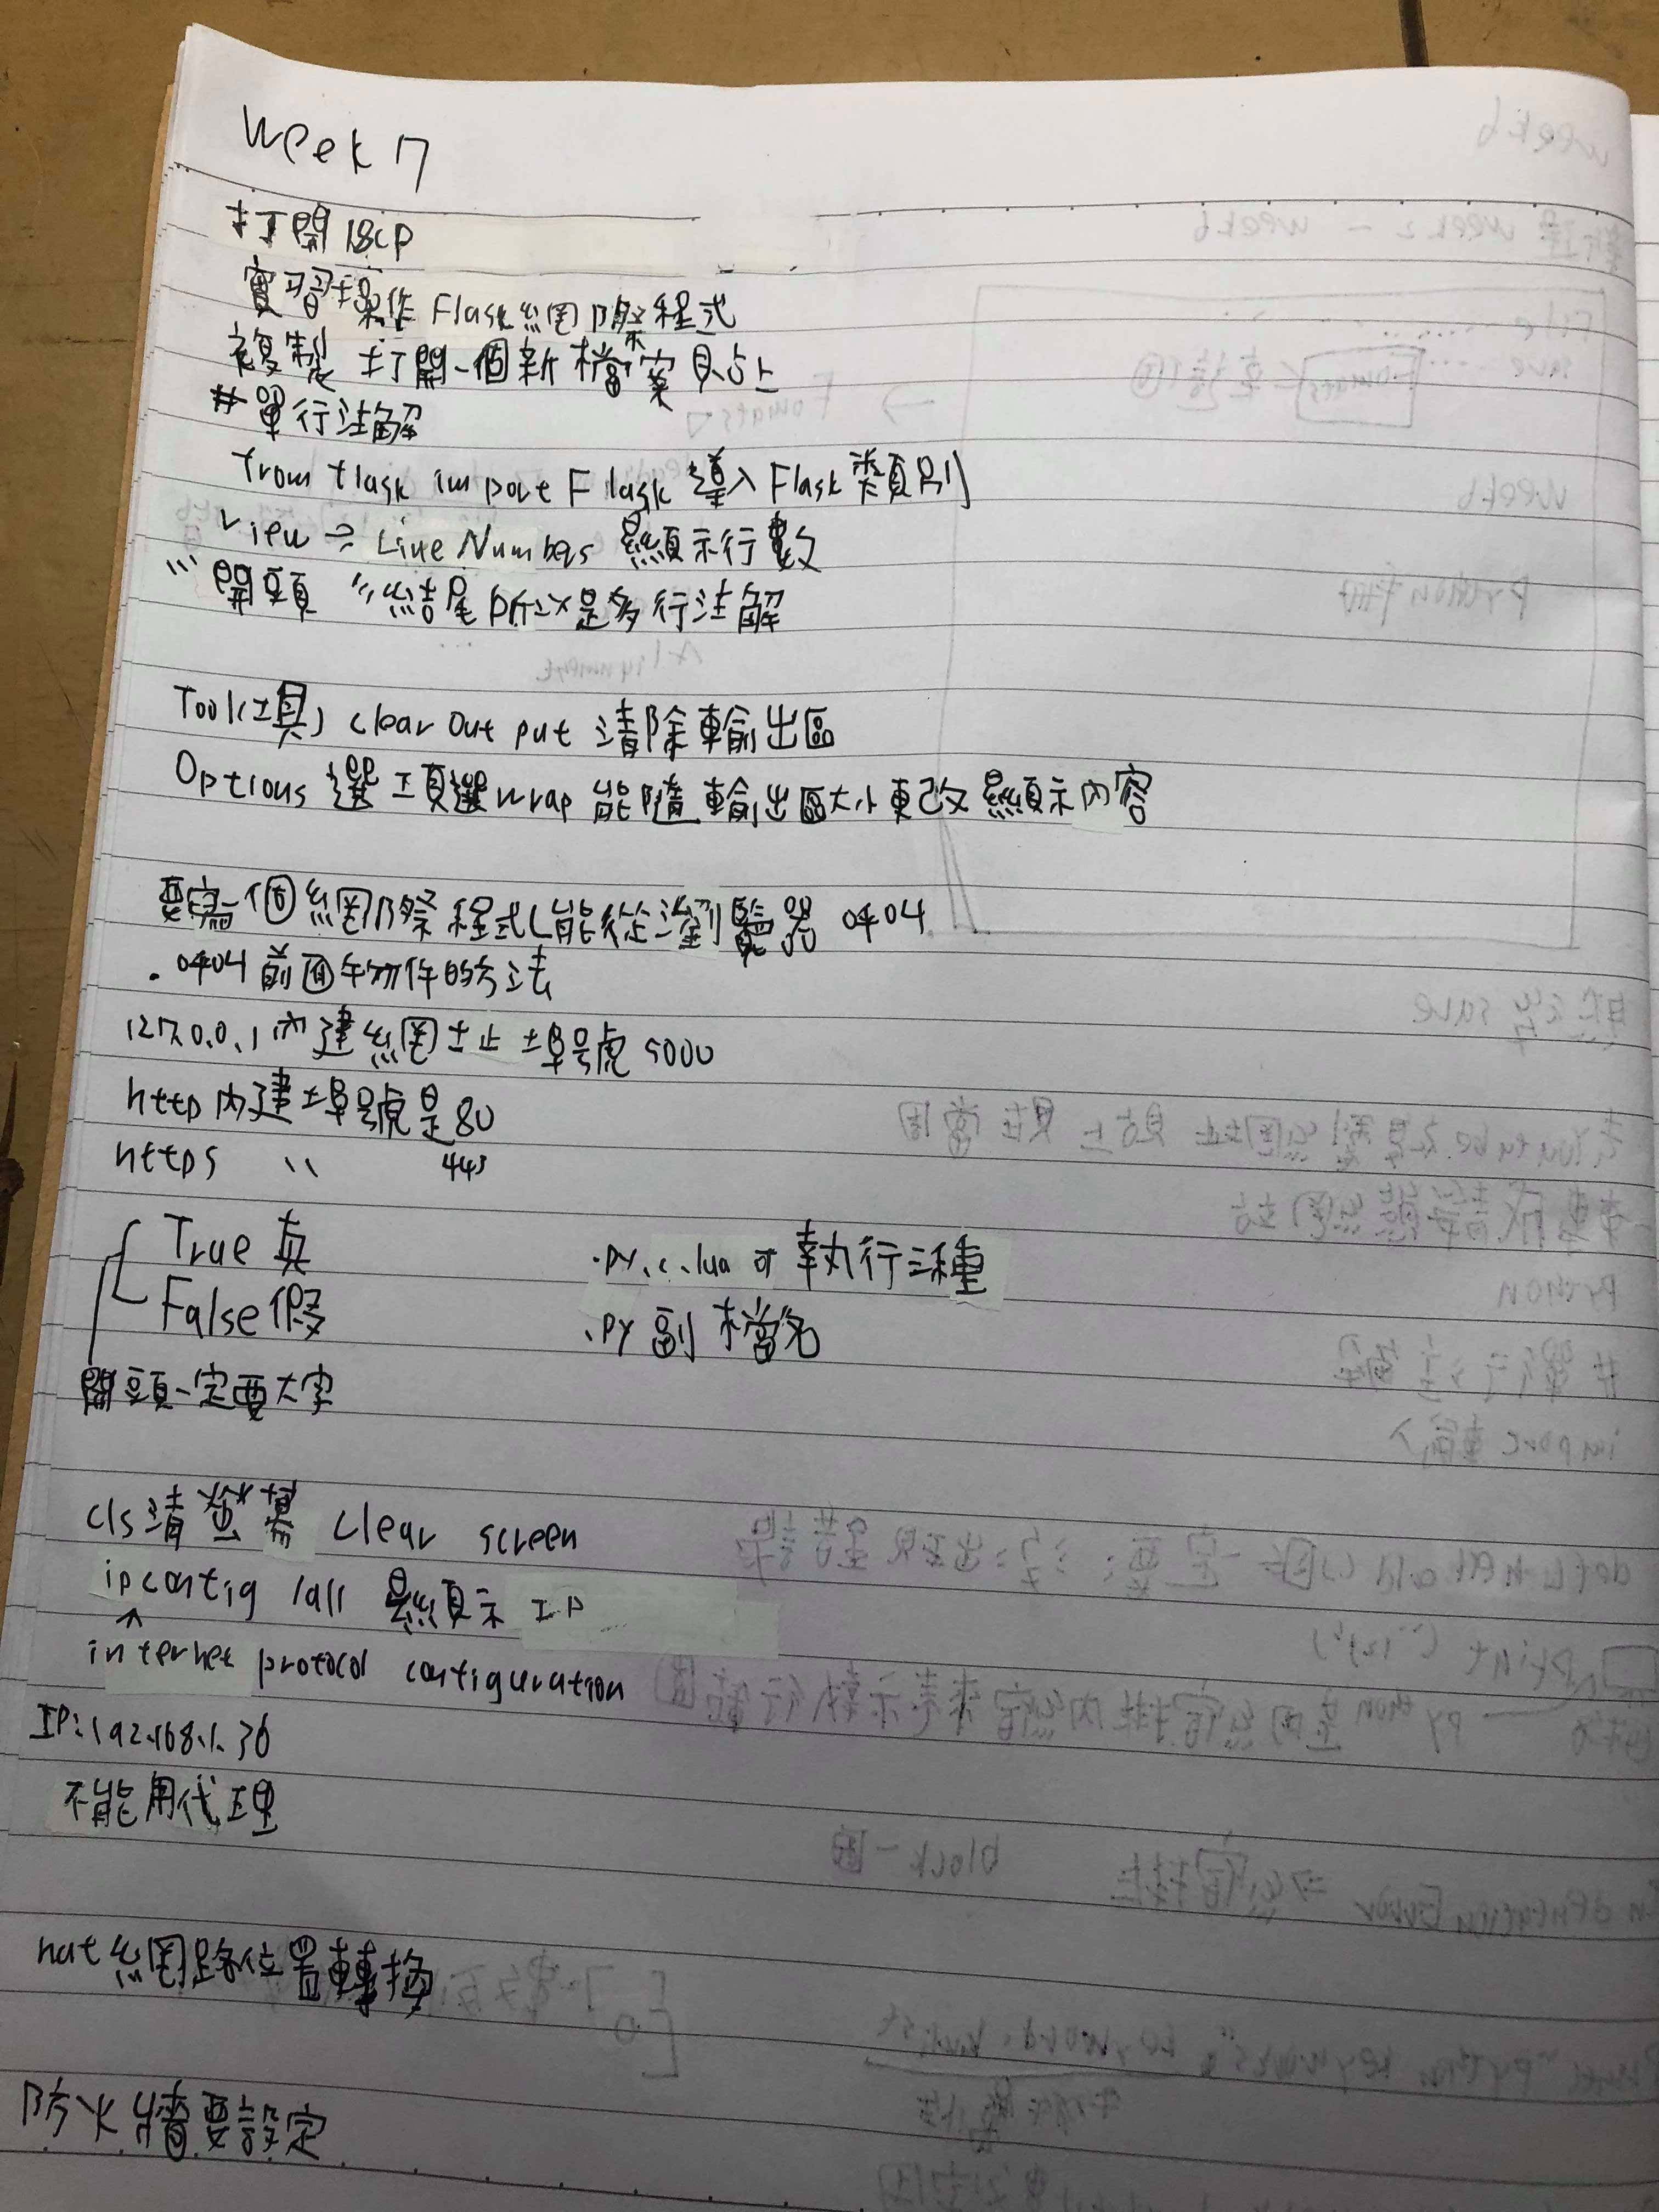 Week 7
打開 18CP
實習操作 Flask網際程式
複製 打開一個新檔案貼上
#單行注解
from flask import Flask 導入 Flask 類別
View => Line Numbers 顯示行數
''' 開頭 '''結尾 所以是多行注解
Tool(工具) Clear Output 清除輸出區
Options 選項選wrap 能隨輸出區大小更改顯示內容
要寫一個網際程式(能從瀏覽器
前面物件的方法
127.0.0.1 內建網址 埠號 5000
http 內建埠號是80
https 〃 443
True 真
False 假
開頭一定要大字
.py .c .lua 可執行三種
.py 副檔名
cls清螢幕 clear screen
ipconfig /all 顯示 IP
internet protocol configuration
IP:192.168.1.36
不能用代理
nat 網路位置轉換
防火牆要設定